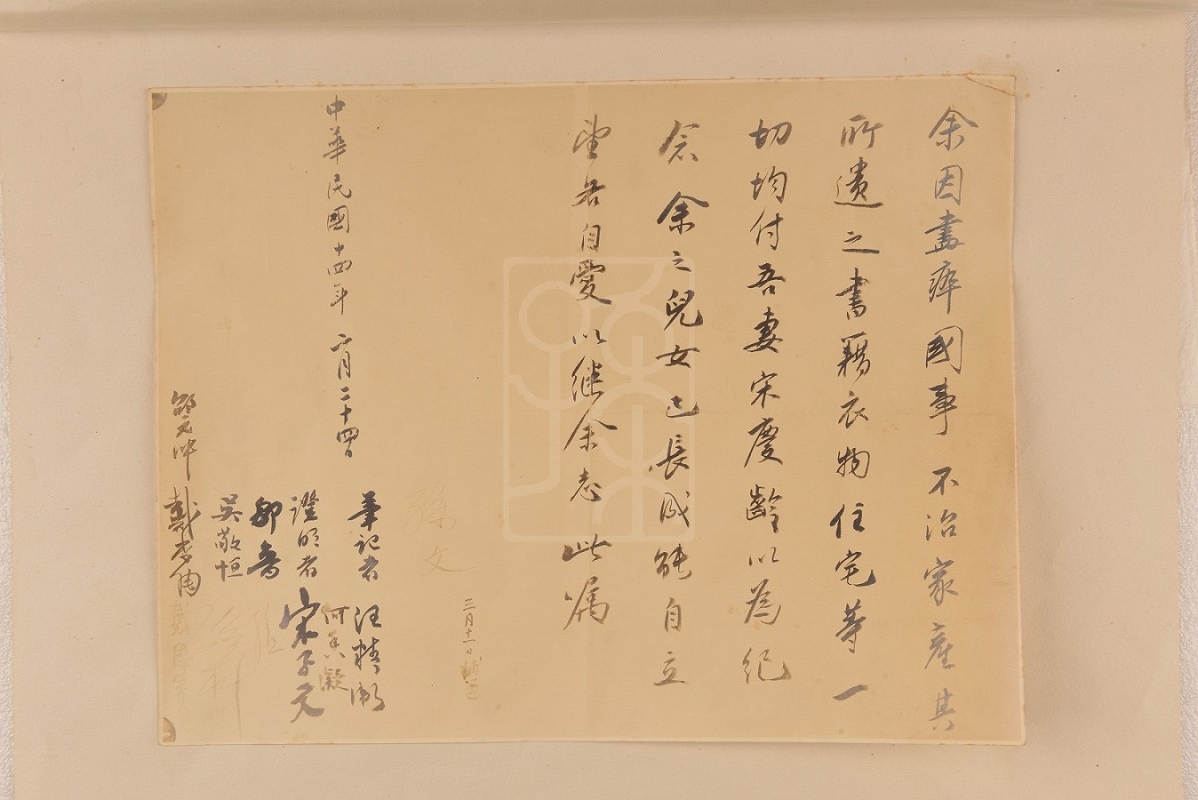 余因盡瘁國事不治家產其
所遺之書籍衣物住宅等一
切均付吾妻宋慶齡以為紀
念余之兒女已長成能自立
望各自愛以繼余志此屬
三月十一日補簽
孫文
中華民國十四年二月二十四日
筆記者 汪精衛
何香凝
證明者 宋子文
鄒魯
孫科
吳敬恒
戴恩賽
邵元沖
戴季陶